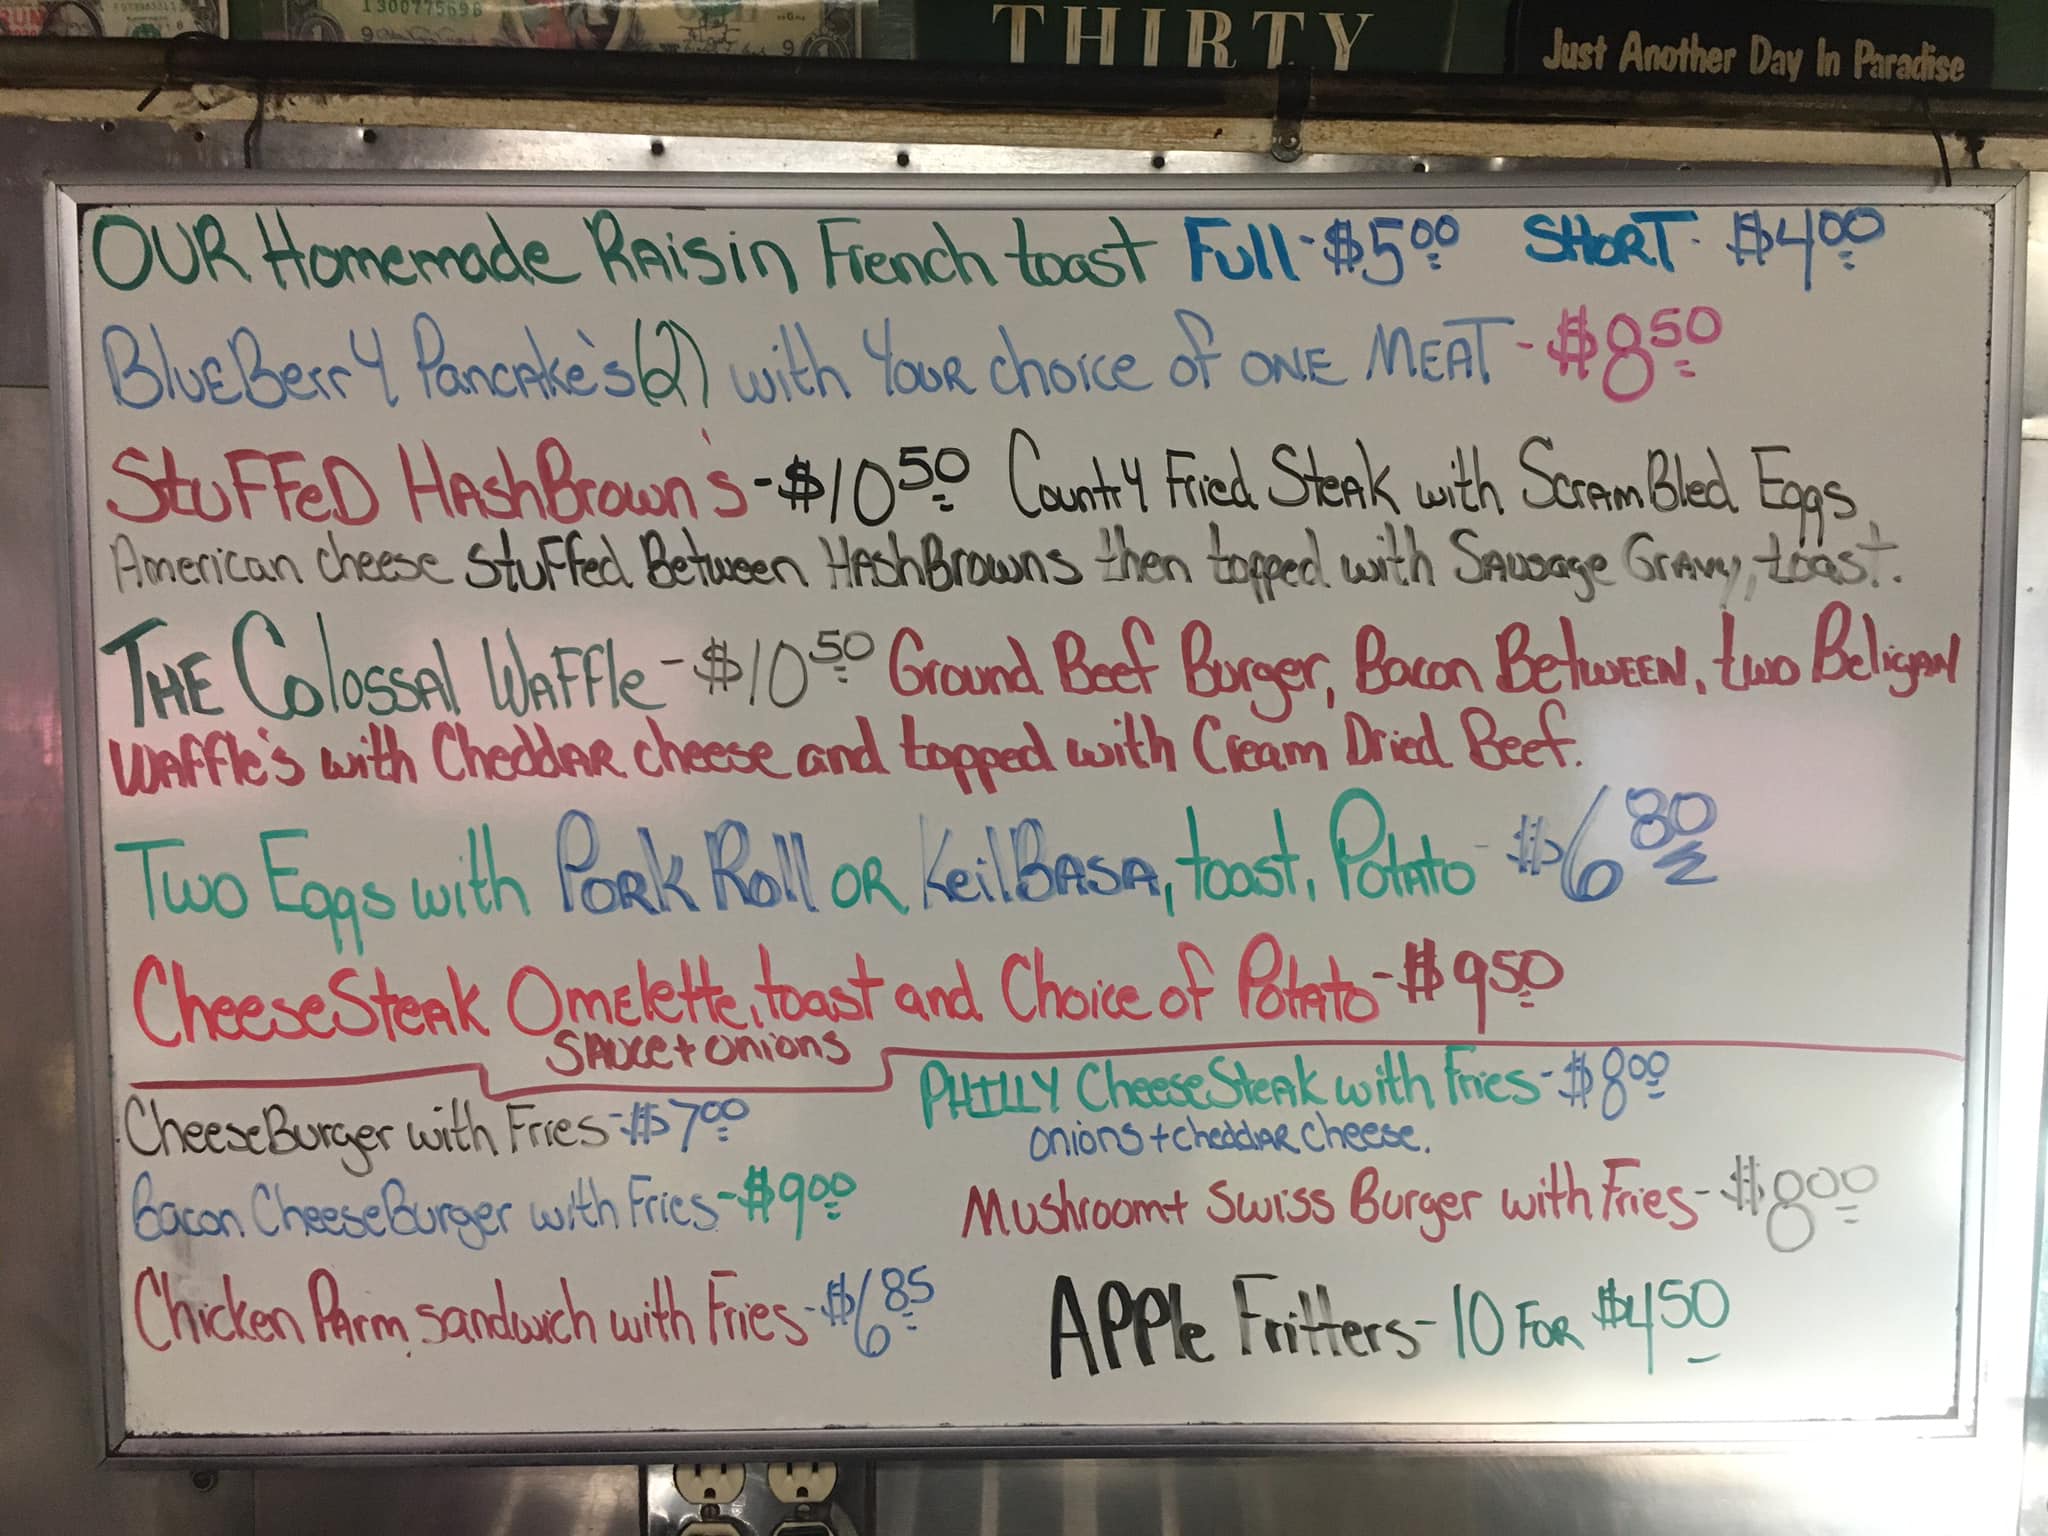 1300775696
THIRTY
Just Another Day In Paradise
OUR Homemade Raisin French toast Full - $5.00 SHORT - $4.00
BlueBerry Pancake's (2) with Your choice of ONE MEAT - $8.50
Stuffed HashBrown's - $10.50 Country Fried Steak with Scrambled Eggs
American cheese Stuffed Between HashBrowns then topped with Sausage Gravy, toast.
THE Colossal Waffle - $10.50 Ground Beef Burger, Bacon Between, two Beligan
Waffle's with Cheddar cheese and topped with Cream Dried Beef.
Two Eggs with Pork Roll OR KeilBasa, toast, Potato - $6.80
CheeseSteak Omelette, toast and Choice of Potato - $9.50
Sauce + onions
CheeseBurger with Fries - $7.00
PHILLY CheeseSteak with Fries - $8.00
onions + cheddar cheese.
Bacon CheeseBurger with Fries - $9.00
Mushroom + Swiss Burger with Fries - $8.00
Chicken Parm sandwich with Fries - $6.85
APPle Fritters - 10 FOR $4.50